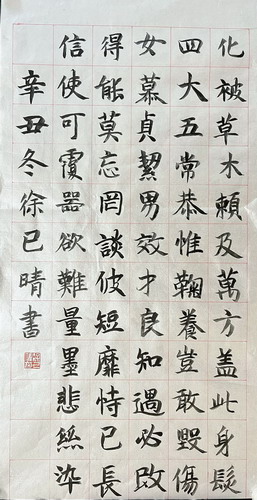 化被草木賴及萬方盖此身髮
四大五常恭惟鞠養豈敢毀傷
女慕貞絜男效才良知過必改
得能莫忘罔談彼短靡恃己長
信使可覆器欲難量墨悲絲染
辛丑冬徐已晴書